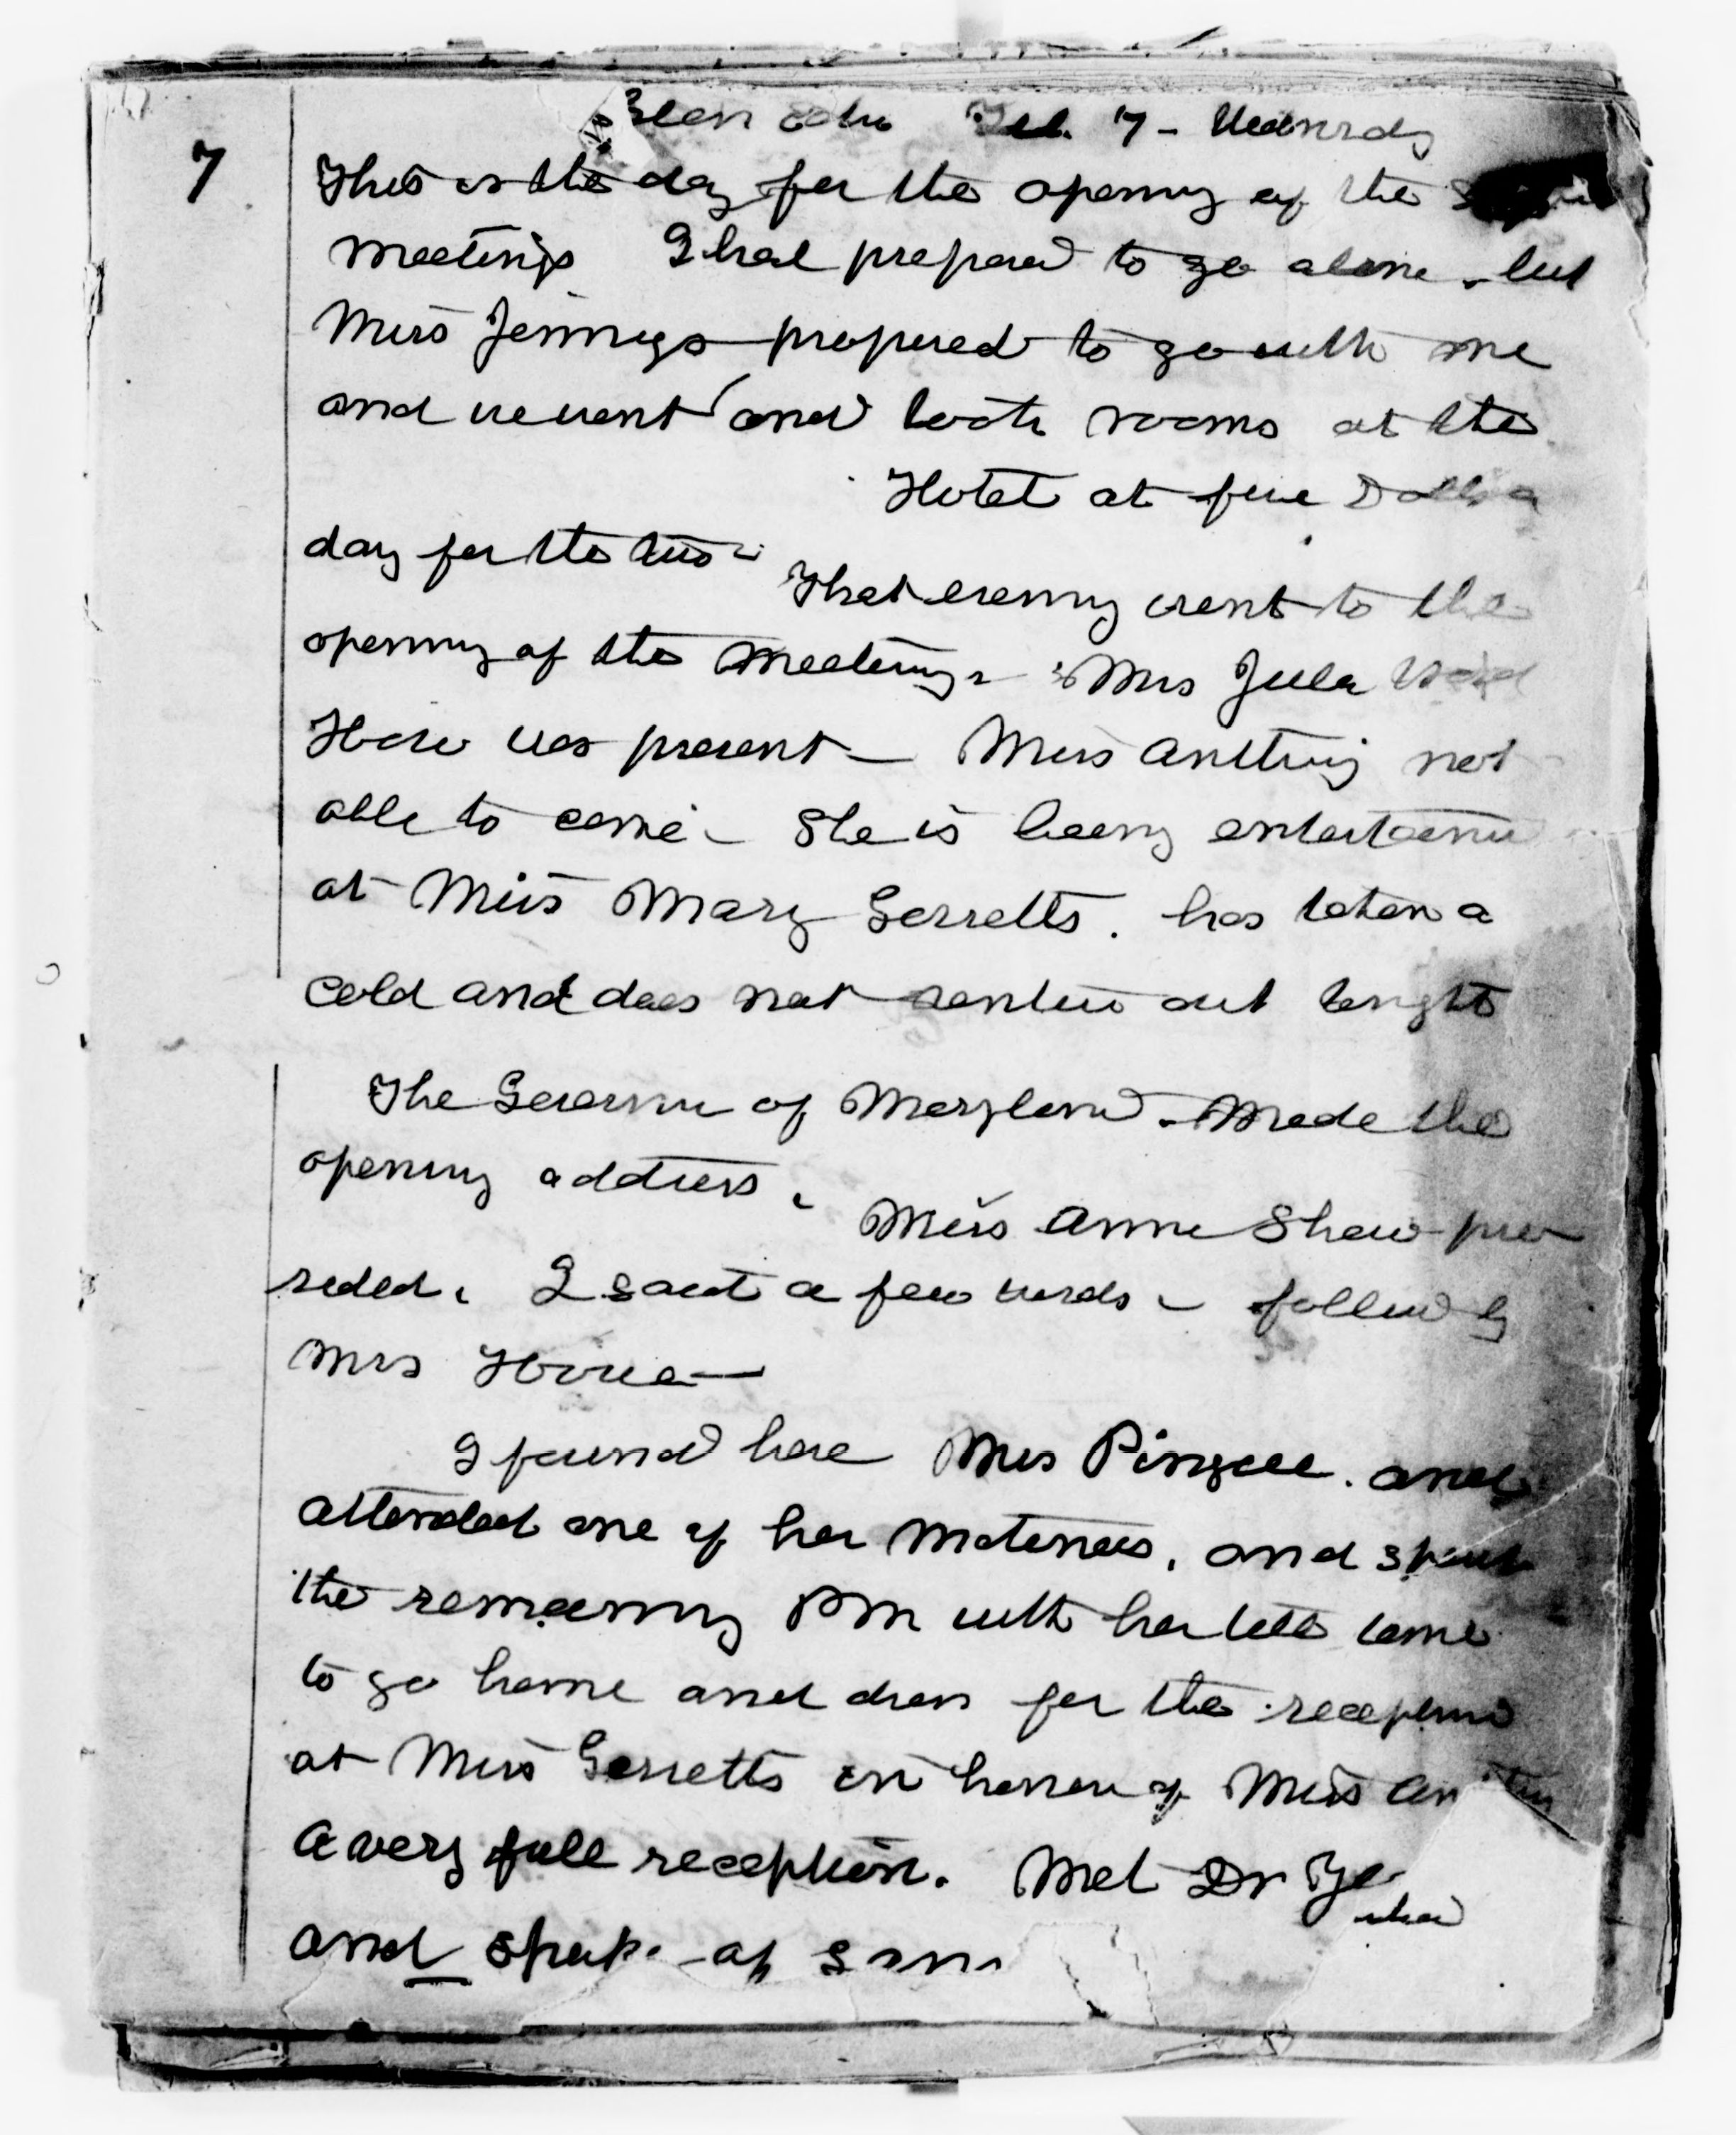 Glen Echo Feb. 7 - Wednesday
7
This is the day for the opening of the
meetings I had prepared to go alone - but
Miss Jennings prepared to go with me
and we went and took rooms at the
Hotel at five Dolls a
day for the two -
That evening went to the
opening of the meeting - Mrs Julia Ward
Howe was present - Miss Anthony not
able to come - She is being entertained
at Miss Mary Garretts. has taken a
cold and does not venture out tonight
The Governor of Maryland - made the
opening address.
Miss Anna Shaw pre
sided. I said a few words - followed by
Mrs Howe -
I found here Mrs and
attended one of her matinees, and spent
the remaining PM with her till time
to go home and dress for the reception
at Miss Garretts in honor of Miss Anthony
A very full reception. Met Dr
and spoke of